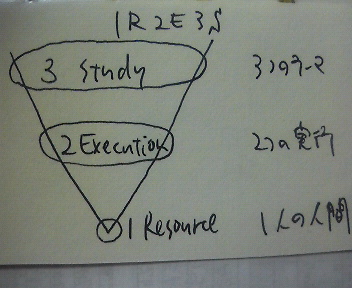 1R2E3S
3 Study 3つのテーマ
2 Execution 2つの実行
1 Resource 1人の人間